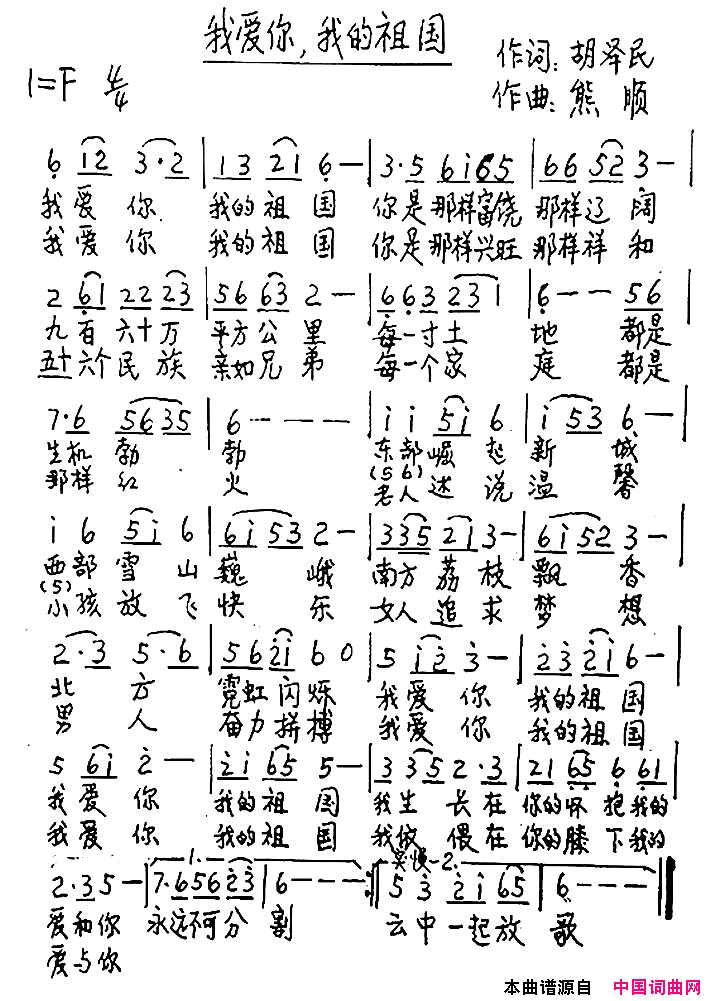 我爱你,我的祖国
1=F 4/4
作词:胡泽民
作曲:熊顺
6 12 3·2 | 13 21 6 — | 3·5 6i65 | 66 52 3 — |
我爱你 我的祖国 你是那样富饶 那样辽阔
我爱你 我的祖国 你是那样兴旺 那样祥和
2 61 22 23 | 56 63 2 — | 663 231 | 6 — — 56 |
九百六十万 平方公里 每一寸土地 都是
五十六个民族 亲如兄弟 每一个家庭 都是
7·6 5635 | 6 — — — | i i 5i 6 | i 53 6 — |
生机勃勃 东部崛起新城
那样红火 老人述说温馨
(56)
i 6 5i 6 | 6i53 2 — | 335 2i 3 — | 6i52 3 — |
西部雪山巍峨 南方荔枝飘香
(5)
小孩放飞快乐 女人追求梦想
2·3 5·6 | 56 2i 6 0 | 5 i2 3 — | 23 2i 6 — |
北方 霓虹闪烁 我爱你 我的祖国
男人 奋力拼搏 我爱你 我的祖国
5 6i 2 — | 2i 65 5 — | 3 35 2·3 | 21 65 6 61 |
我爱你 我的祖国 我生长在 你的怀抱 我的
我爱你 我的祖国 我依偎在 你的膝下 我的
1. 突慢 2.
2·3 5 — | 7·656 23 | 6 — — — :| 5 3 2i 65 | 6 — — — ‖
爱和你 永远不可分割 云中一起放歌
爱与你
本曲谱源自 中国词曲网